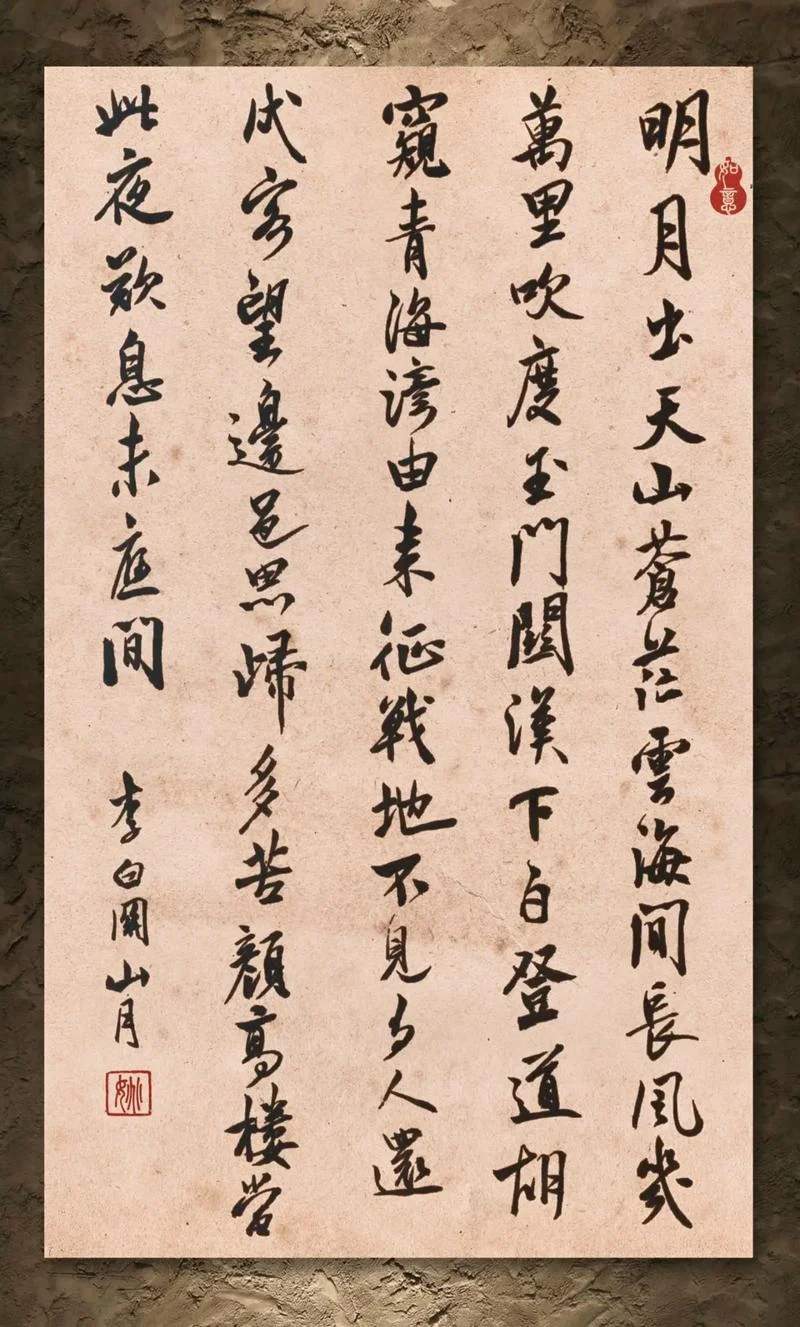 明月出天山蒼茫雲海間長風幾
如意
萬里吹度玉門關漢下白登道胡
窺青海湾由来征戰地不見有人還
戍客望邊邑思歸多苦顏高樓當
此夜歎息未應間
李白關山月